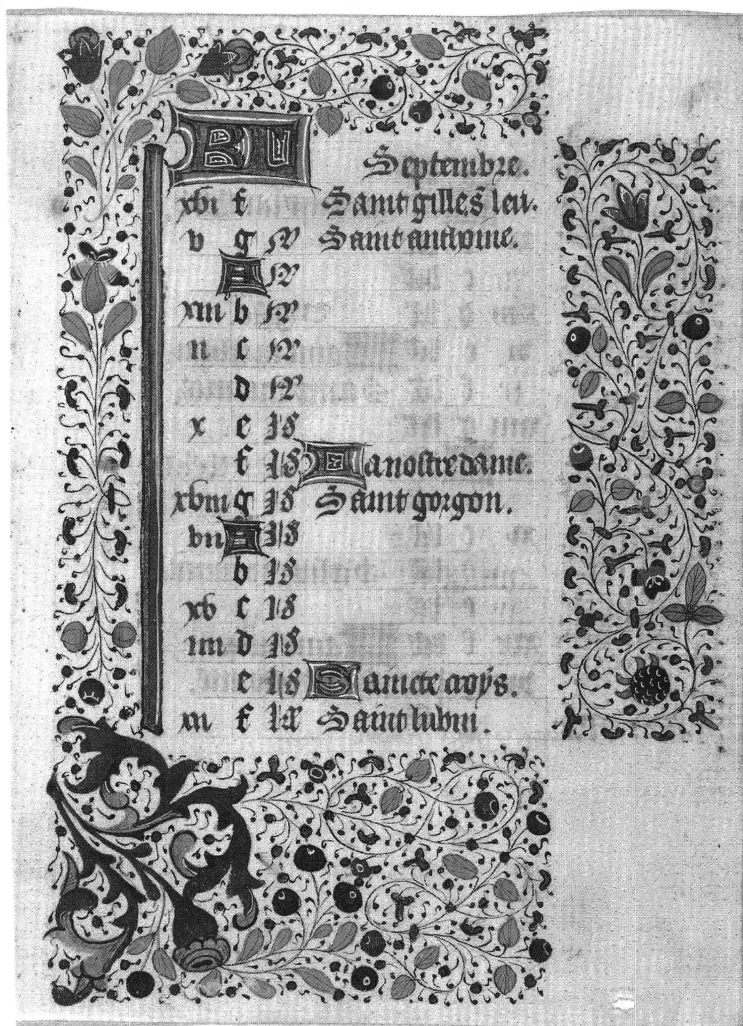 KL Septembre.
xvi f Saint gilles leu.
v g N Saint anthoine.
A N
xiii b N
ii c N
d N
x e Id
f Id La nostre dame.
xviii g Id Saint gorgon.
vii A Id
b Id
xv c Id
iiii d Id
e Id Saincte croys.
xii f kł Saint lubin.